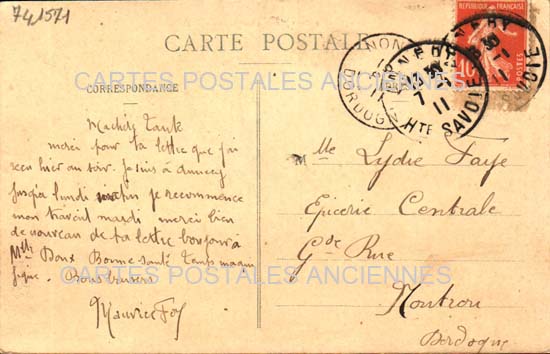 741571
CARTE POSTALE
REPUBLIQUE FRANÇAISE
10
ANNECY
7
11
Hte SAVOIE
DORDOGNE
CARTES POSTALES ANCIENNES
CORRESPONDANCE
merci pour ta lettre que j'ai
reçu hier au soir. Je suis à Annecy
jusqu'à lundi je recommence
mon travail mardi merci bien
de nouveau de ta lettre bonjour à
Mlle Bonne santé temps magni
fique. Bons baisers
Maurice
Mlle Lydie Faye
Epicerie Centrale
Gde Rue
Nontron
Dordogne
CARTES POSTALES ANCIENNES